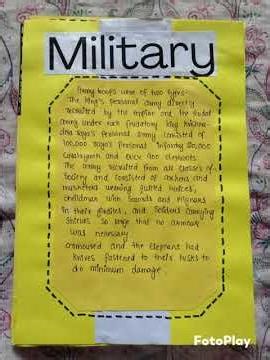 Military
Army troops were of two types:
The King's personal army directly
recruited by the empire and the feudal
army under each feudatory. King Krishna-
deva raya's personal army consisted of
100,000 infantry 20,000
cavalrymen and over 900 elephants.
The army recruited from all classes of
society and consisted of archers and
musketeers wearing quilted tunics,
shieldman with swords and poignards
in their girdles, and soldiers carrying
shields so large that no armour
was necessary.
and the elephants had
knives fastened to their tusks to
do maximum damage.
FotoPlay